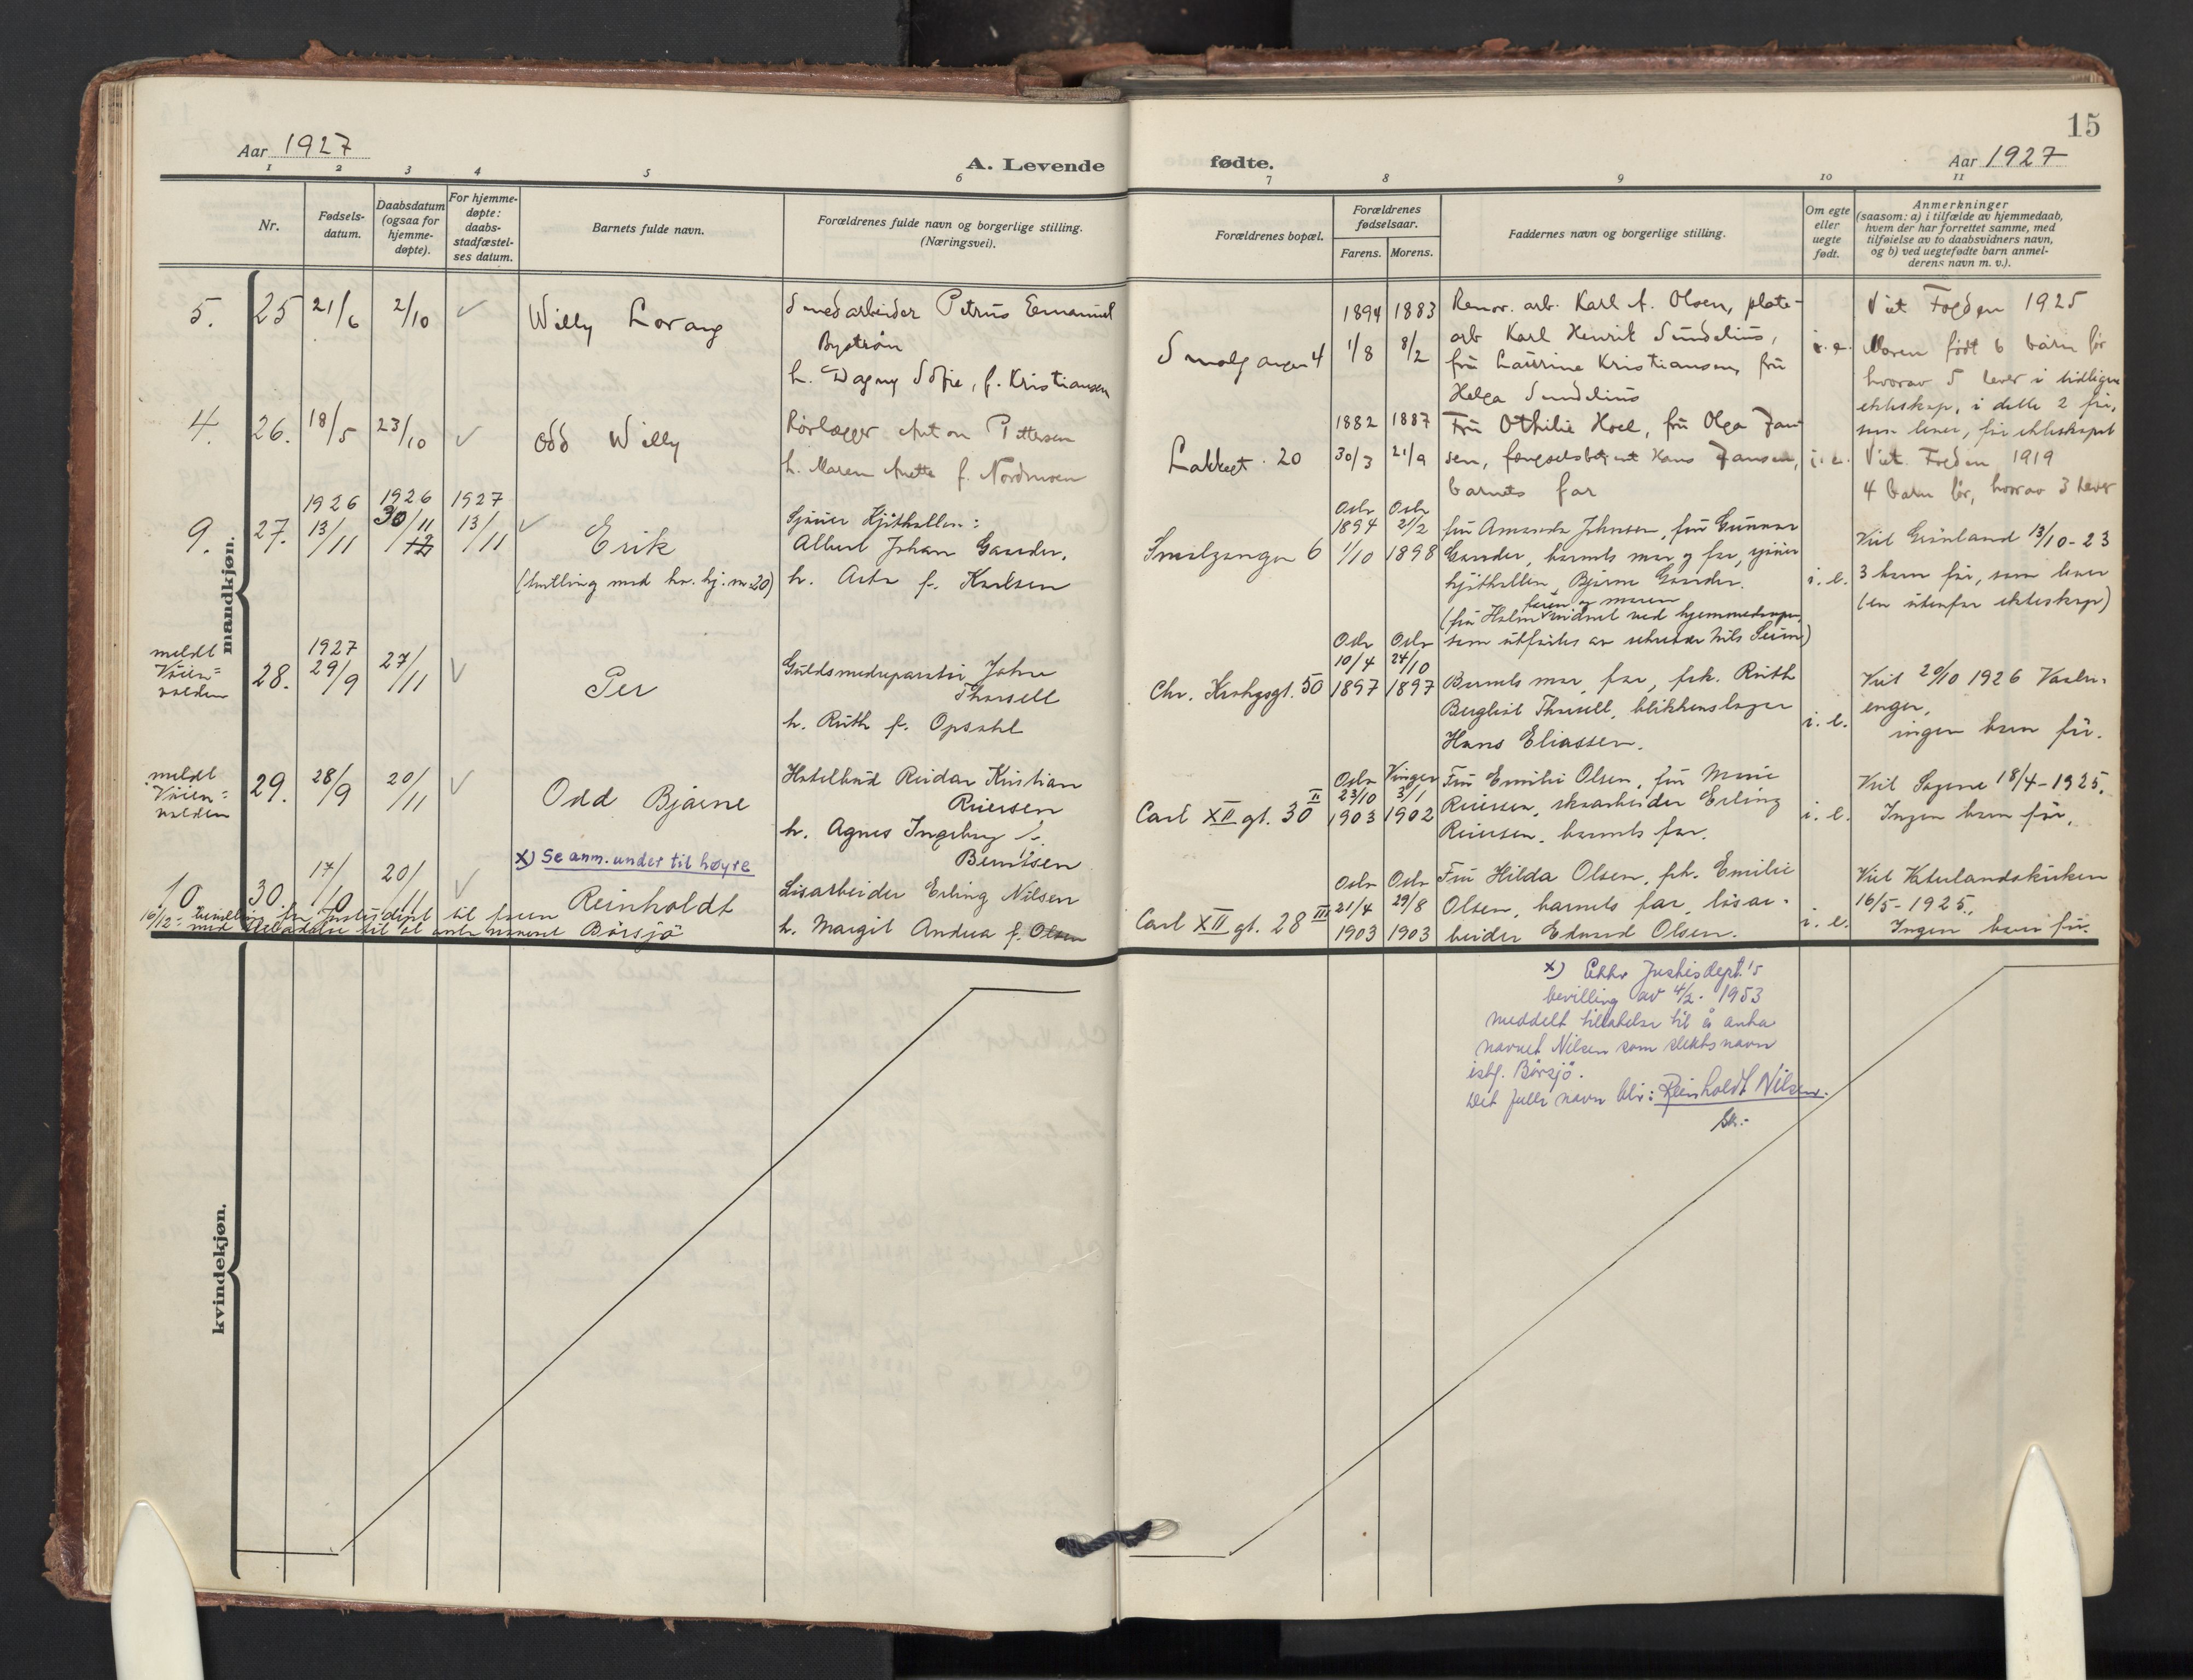 15
Aar 1927
A. Levende fødte.
Aar 1927
1 2 3 4 5 6 7 8 9 10 11
Nr.
Fødsels-
datum.
Daabsdatum
(ogsaa for
hjemme-
døpte).
For hjemme-
døpte:
daabs-
stadfæstel-
ses datum.
Barnets fulde navn.
Forældrenes fulde navn og borgerlige stilling.
(Næringsvei).
Forældrenes bopæl.
Forældrenes
fødselsaar.
Farens. Morens.
Faddernes navn og borgerlige stilling.
Om egte
eller
uegte
født.
Anmerkninger
(saasom: a) i tilfælde av hjemmedaab,
hvem der har forrettet samme, med
tilføielse av to daabsvidners navn,
og b) ved uegtefødte barn anmel-
derens navn m. v.).
mandkjøn.
5. 25 21/6 2/10 ✓
Willy Lorang
Smedarbeider Petrus Emanuel
Byström
h. Dagny Sofie, f. Kristiansen
Smalgangen 4
1894 1883
1/8 8/2
Renov. arb. Karl A. Olsen, plate-
arb Karl Henrik Sundelius,
frü Laurine Kristiansen, frü
Helga Sundelius
i. e.
Viet Fogden 1925
Moren født 6 barn før
hvorav 5 lever i tidligere
ekteskap, i dette 2 før,
som lever, før ekteskapet
4. 26. 18/5 23/10 ✓
Odd Willy
Rørlægger Anton Pettersen
h. Maren Anette f. Nordmoen
Lakkegt. 20
1882 1887
30/3 21/9
Frü Othilie Hoel, frü Olga Jan-
sen, fængselsbetjent Hans Jansen,
barnets far
i. e.
Viet Fogden 1919
4 barn før, hvorav 3 lever
9. 27. 1926 13/11 1926 30/11 1927 13/11 ✓
Erik
(tvilling med kv. kj. nr. 20)
Sjauer Kjøthallen:
Albert Johan Gander.
h. Asta f. Karlsen
Smalgangen 6
Oslo Oslo
1894 21/2
1/10 1898
frü Amanda Johnsen, frü Gunnar
Gander, barnets mor og far, sjauer
kjøthallen, Bjarne Gander.
faren og moren
(frü Holm vidnet ved hjemmedaapen,
som utførtes av sekretær Nils Seim)
i. e.
Viet Grønland 13/10-23
3 barn før, som lever
(en utenfor ekteskap)
meldt
Vøien-
volden
28. 1927 29/9 27/11 ✓
Per
Guldsmedreparatør John
Thorsell
h. Ruth f. Opsahl
Chr. Krohgsgt. 50
Oslo Oslo
10/4 24/10
1897 1897
Barnets mor, far, frk. Ruth
Berglist Thorsell, blikkenslager
Hans Eliassen.
i. e.
Viet 20/10 1926 Vaaler-
engen,
ingen barn før.
meldt
Vøien-
volden
29. 28/9 20/11 ✓
Odd Bjarne
Hotelbud Reidar Kristian
Reiersen
h. Agnes Ingeborg f.
Berntsen
Carl XII gt. 30 II
Oslo Vinger
23/10 3/1
1903 1902
Frü Emilie Olsen, frü Marie
Reiersen, skoarbeider Erling
Reiersen, barnets far.
i. e.
Viet Sagene 18/4-1925.
Ingen barn før.
x) Se anm. under til høyre
10 30. 17/10 20/11 ✓
Reinholdt
Lisarbeider Erling Nilsen
h. Margit Andrea f. Olsen
16/12: bevilling fra Justisdept til faren
med tilladelse til at anta navnet Börsjö
Carl XII gt. 28 III
Oslo Oslo
21/4 29/8
1903 1903
Frü Hilda Olsen, frk. Emilie
Olsen, barnets far, lisar-
beider Edvard Olsen.
i. e.
Viet Vaterlandskirken
16/5-1925.
Ingen barn før.
kvindekjøn.
x) Etter Justisdept.'s
bevilling av 4/2-1953
meddelt tillatelse til å anta
navnet Nilsen som slektsnavn
istf. Börsjö.
Det fulle navn blir: Reinholdt Nilsen.